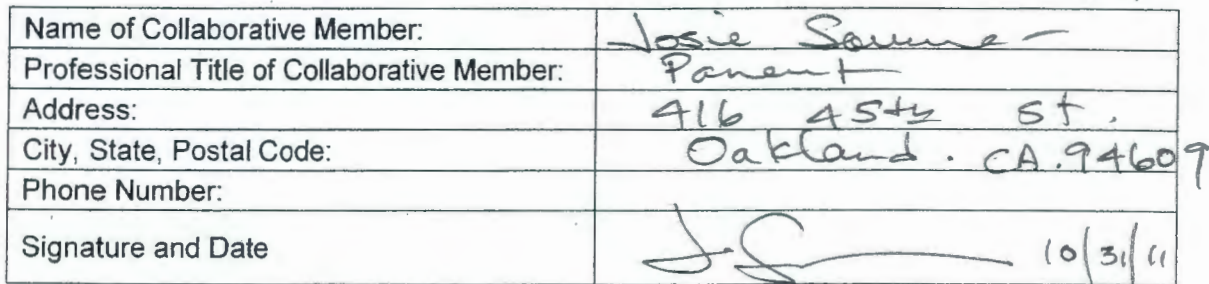 Name of Collaborative Member: Josie
Professional Title of Collaborative Member: Parent
Address: 416 45th St.
City, State, Postal Code: Oakland. CA. 94609
Phone Number:
Signature and Date 10/31/11